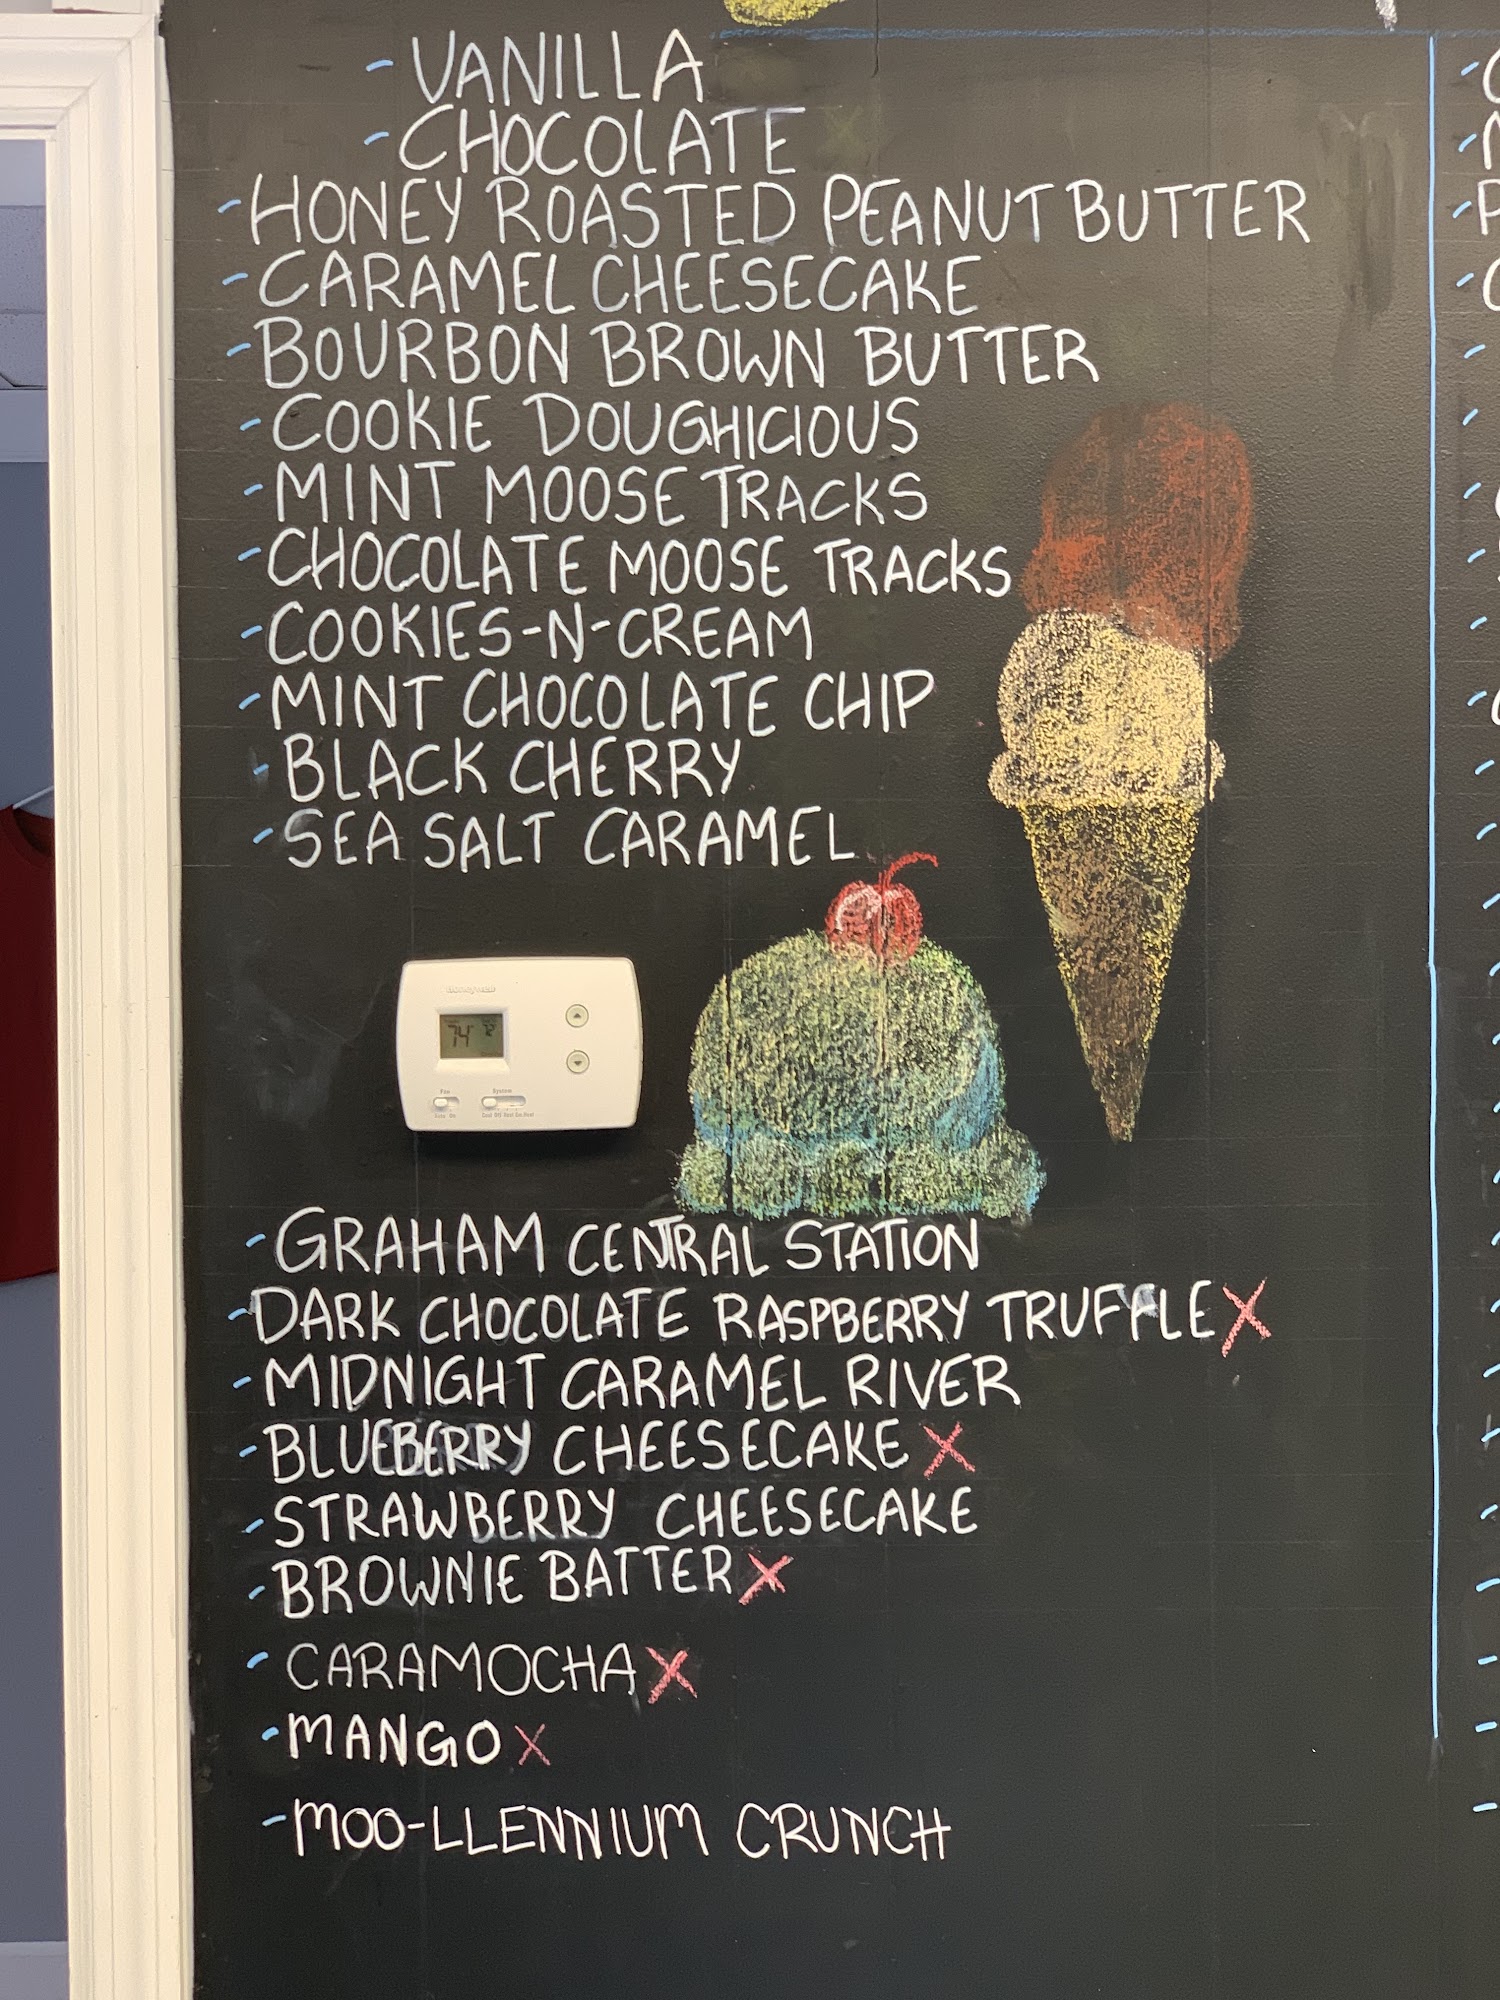 - VANILLA
- CHOCOLATE
- HONEY ROASTED PEANUT BUTTER
- CARAMEL CHEESECAKE
- BOURBON BROWN BUTTER
- COOKIE DOUGHICIOUS
- MINT MOOSE TRACKS
- CHOCOLATE MOOSE TRACKS
- COOKIES-N-CREAM
- MINT CHOCOLATE CHIP
- BLACK CHERRY
- SEA SALT CARAMEL
Honeywell
74 72
Fan System
Auto On Cool Off Heat Em.Heat
- GRAHAM CENTRAL STATION
- DARK CHOCOLATE RASPBERRY TRUFFLE X
- MIDNIGHT CARAMEL RIVER
- BLUEBERRY CHEESECAKE X
- STRAWBERRY CHEESECAKE
- BROWNIE BATTER X
- CARAMOCHA X
- MANGO X
- MOO-LLENNIUM CRUNCH